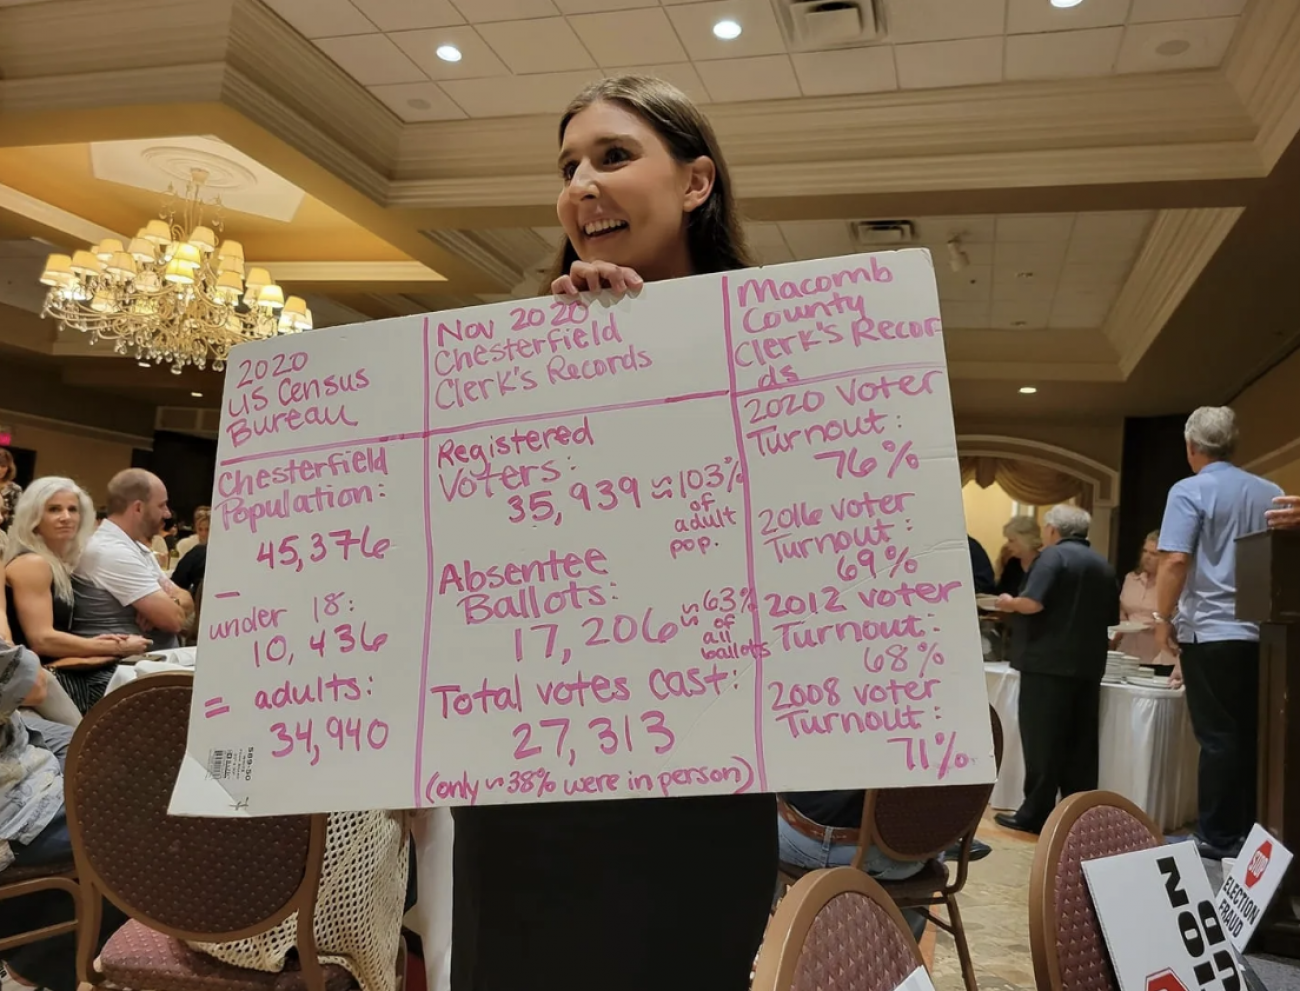 2020
US Census
Bureau
Chesterfield
Population:
45,376
–
under 18:
10,436
= adults:
34,940
Nov 2020
Chesterfield
Clerk's Records
Registered
Voters:
35,939 ≈103%
of
adult
pop.
Absentee
Ballots:
17,206 ≈63%
of
all
ballots
Total votes cast:
27,313
(only ~38% were in person)
Macomb
County
Clerk's Recor
ds
2020 Voter
Turnout:
76%
2016 voter
Turnout:
69%
2012 voter
Turnout:
68%
2008 voter
Turnout:
71%
STOP
ELECTION
FRAUD